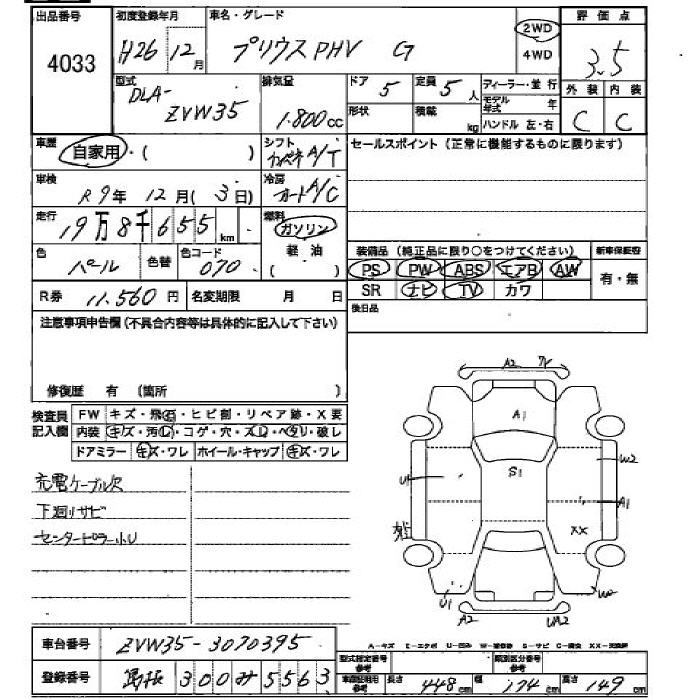 出品番号 初度登録年月 車名・グレード 評価点
4033 H26年12月 プリウスPHV G 2WD 4WD 3.5
型式 DLA-ZVW35 排気量 1.800cc
ドア 5 定員 5人 ディーラー・並行 外装 内装
形状 積載 kg モデル年式 年 ハンドル 左・右 C C
車歴 自家用・( ) シフト A/T セールスポイント(正常に機能するものに限ります)
車検 R9年12月(3日) 冷房 オートA/C
走行 19万8千655km 燃料 ガソリン 軽油 ( )
色 パール 色替 色コード 070 装備品(純正品に限り○をつけてください) 新車保証書
PS PW ABS エアB AW 有・無
SR ナビ TV カワ
R券 11.560円 名変期限 月 日 後日品
注意事項申告欄(不具合内容等は具体的に記入して下さい)
修復歴 有 (箇所 )
検査員記入欄 FW キズ・飛石・ヒビ割・リペア跡・X要
内装 キズ・汚レ・コゲ・穴・スレ・ヘタリ・破レ
ドアミラー キズ・ワレ ホイール・キャップ キズ・ワレ
充電ケーブル欠
下廻リサビ
センターピラー小U
A2 TV
A1
S1
U1
W2
A1
XX
U1
A2
UA2
車台番号 ZVW35-3070395
A-キズ E-エクボ U-凹み W-補修跡 S-サビ C-腐食 XX-交換済
登録番号 島根 300み5563
型式指定番号 参考 類別区分番号 参考
車検証明用 参考 長さ 448cm 幅 174cm 高さ 149cm